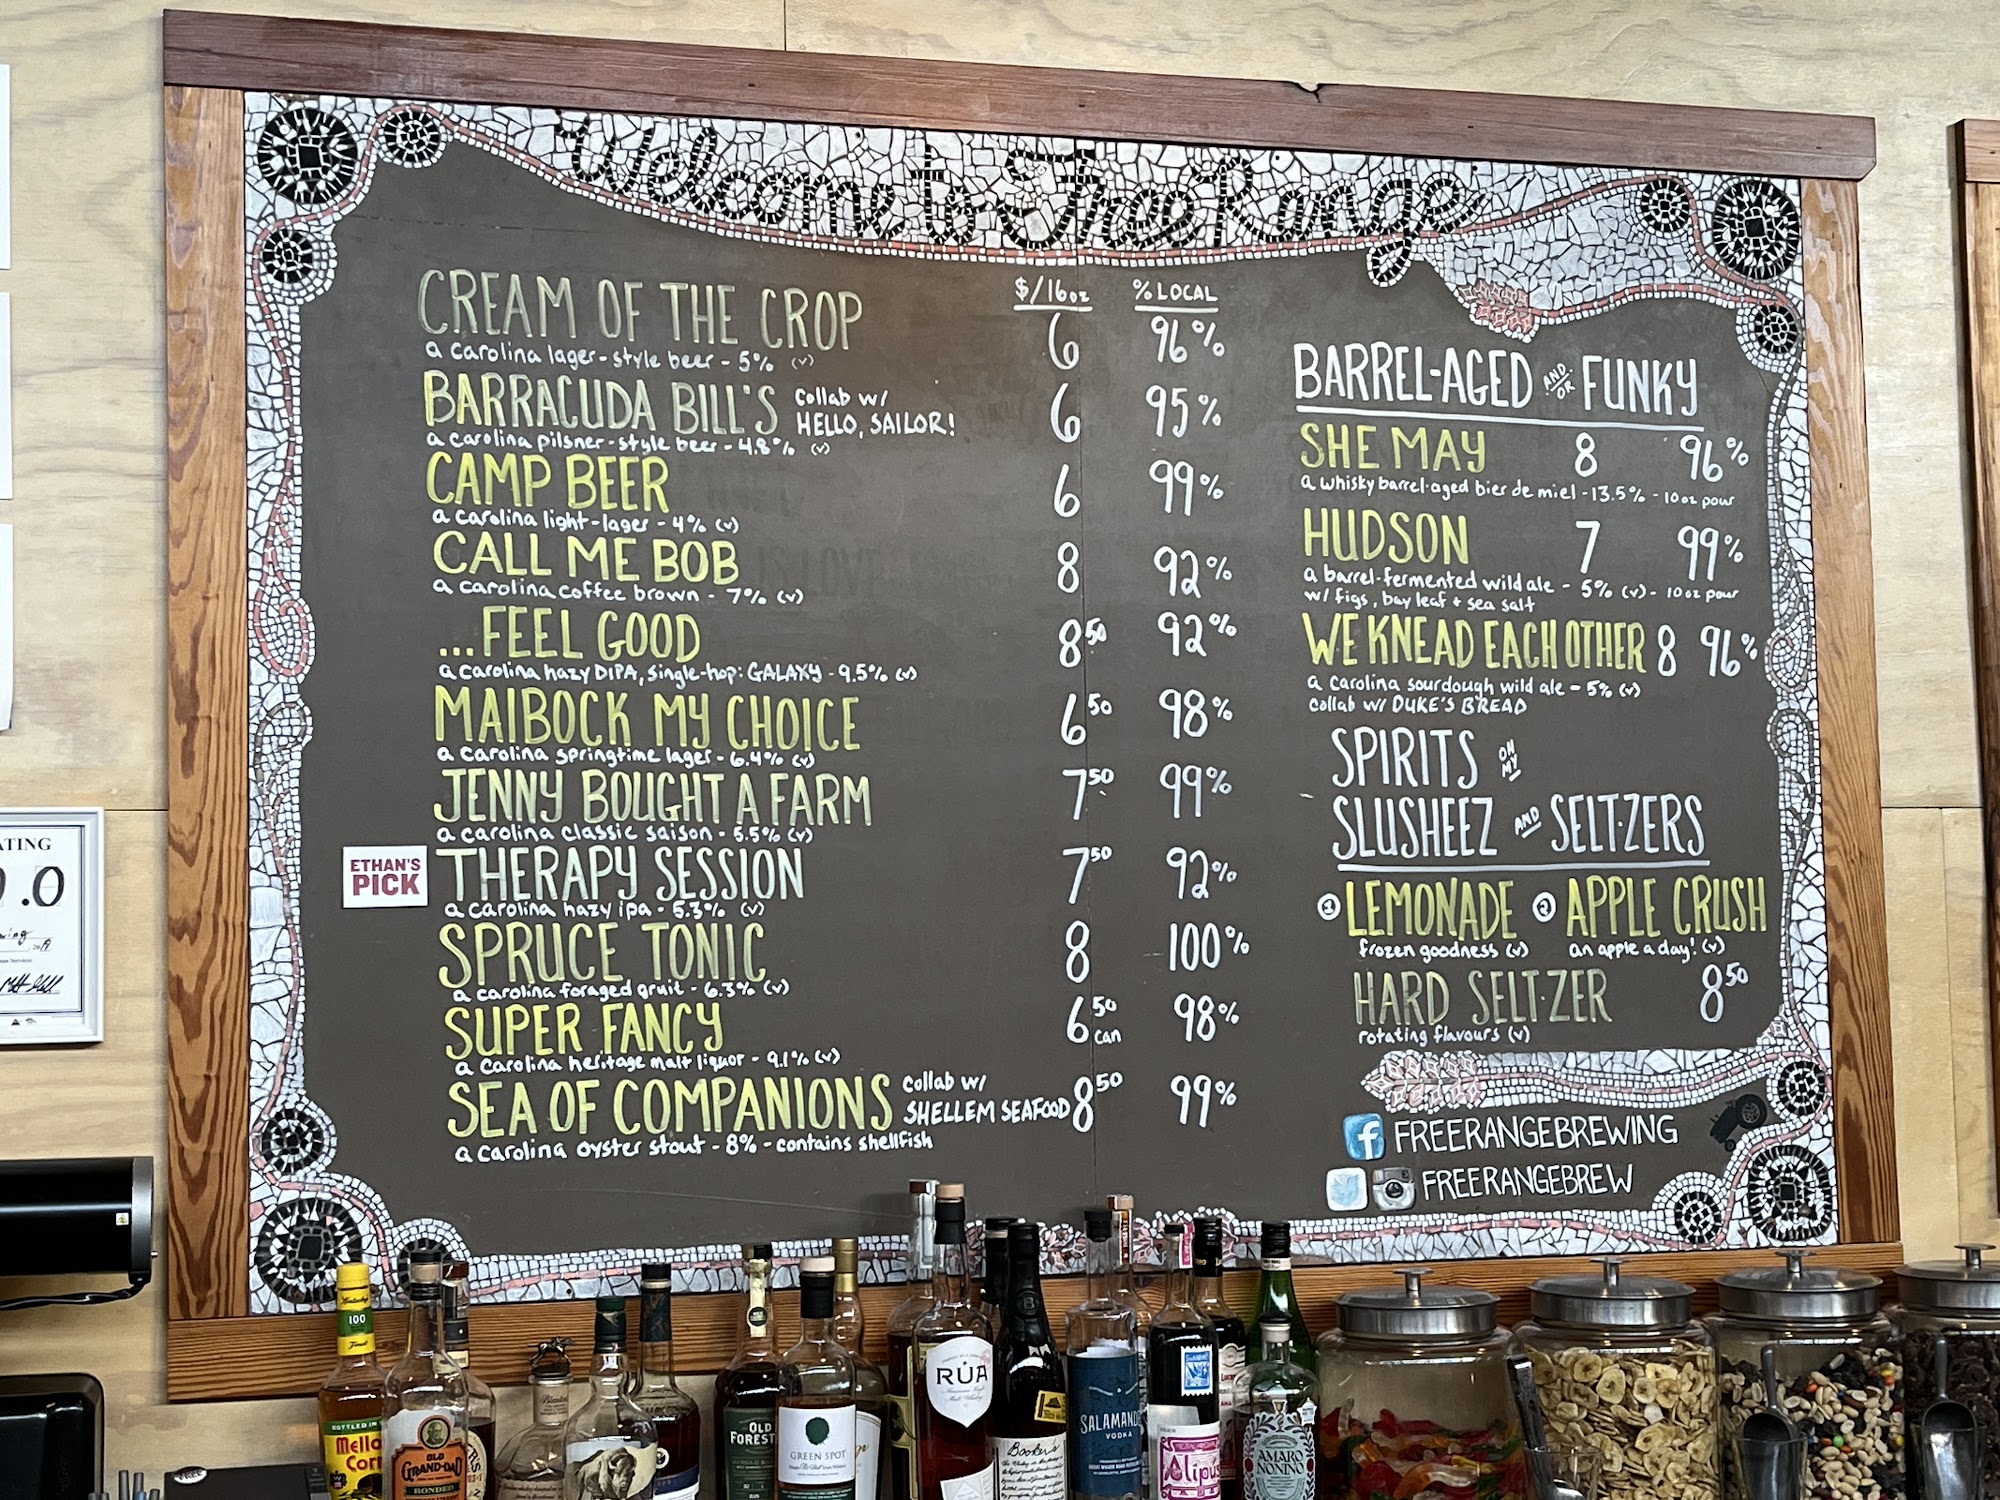 Welcome to Free Range
$/16oz % LOCAL
CREAM OF THE CROP 6 96%
a carolina lager-style beer - 5% (v)
BARRACUDA BILL'S collab w/ HELLO, SAILOR! 6 95%
a carolina pilsner-style beer - 4.8% (v)
CAMP BEER 6 99%
a carolina light-lager - 4% (v)
CALL ME BOB 8 92%
a carolina coffee brown - 7% (v)
...FEEL GOOD 8 50 92%
a carolina hazy DIPA, single-hop: GALAXY - 9.5% (v)
MAIBOCK MY CHOICE 6 50 98%
a carolina springtime lager - 6.4% (v)
JENNY BOUGHT A FARM 7 50 99%
a carolina classic saison - 5.5% (v)
ETHAN'S
PICK
THERAPY SESSION 7 50 92%
a carolina hazy ipa - 5.3% (v)
SPRUCE TONIC 8 100%
a carolina foraged gruit - 6.3% (v)
SUPER FANCY 6 50 can 98%
a carolina heritage malt liquor - 9.1% (v)
SEA OF COMPANIONS collab w/ SHELLEM SEAFOOD 8 50 99%
a carolina oyster stout - 8% - contains shellfish
BARREL-AGED AND/OR FUNKY
SHE MAY 8 96%
a whisky barrel-aged bier de miel - 13.5% - 10oz pour
HUDSON 7 99%
a barrel-fermented wild ale - 5% (v) - 10oz pour
w/ figs, bay leaf + sea salt
WE KNEAD EACH OTHER 8 96%
a carolina sourdough wild ale - 5% (v)
collab w/ DUKE'S BREAD
SPIRITS OH MY
SLUSHEEZ AND SELT·ZERS
1 LEMONADE 2 APPLE CRUSH
frozen goodness (v) an apple a day! (v)
HARD SELT·ZER 8 50
rotating flavours (v)
f FREERANGEBREWING
FREERANGEBREW
ATING
.0
100
BOTTLED IN
Mello
Cor
OLD
GRAND-DAD
BONDED
OLD
FOREST
GREEN SPOT
RÚA
Booker's
SALAMAND
VODKA
Alipus
AMARO
NONINO